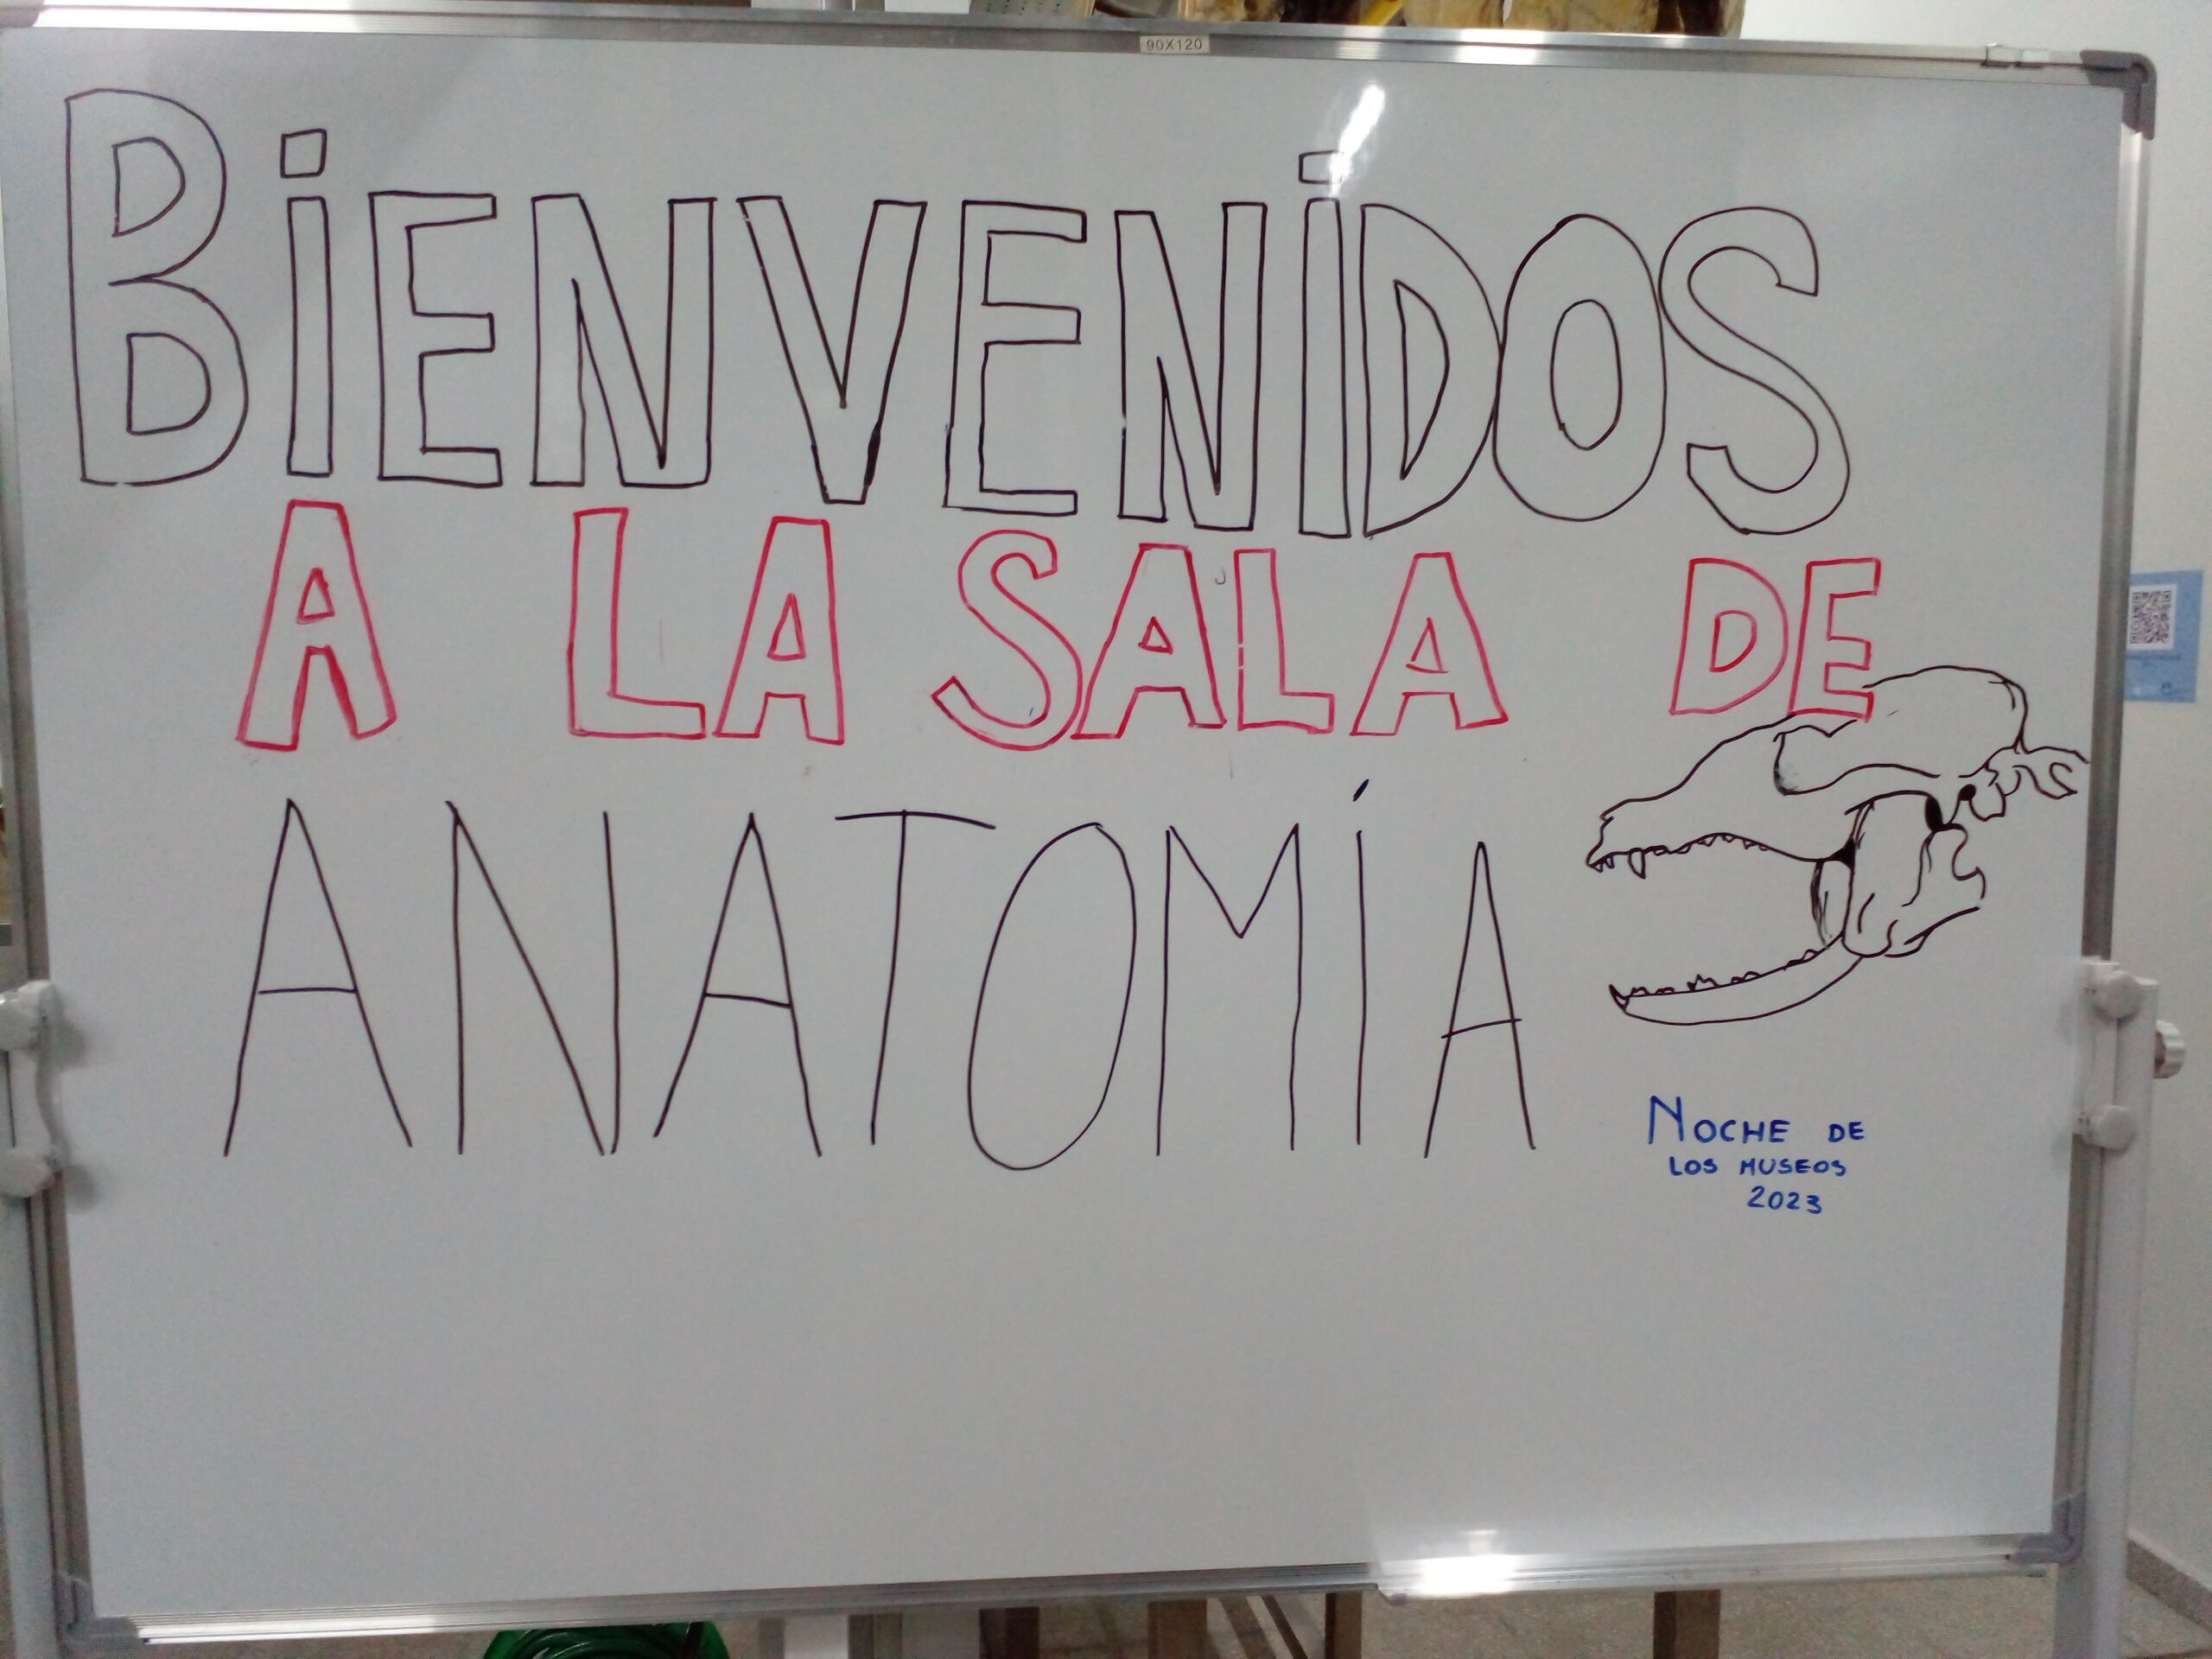 90X120
BiENVENiDOS
A LA SALA DE
ANATOMÍA
NOCHE DE
LOS MUSEOS
2023